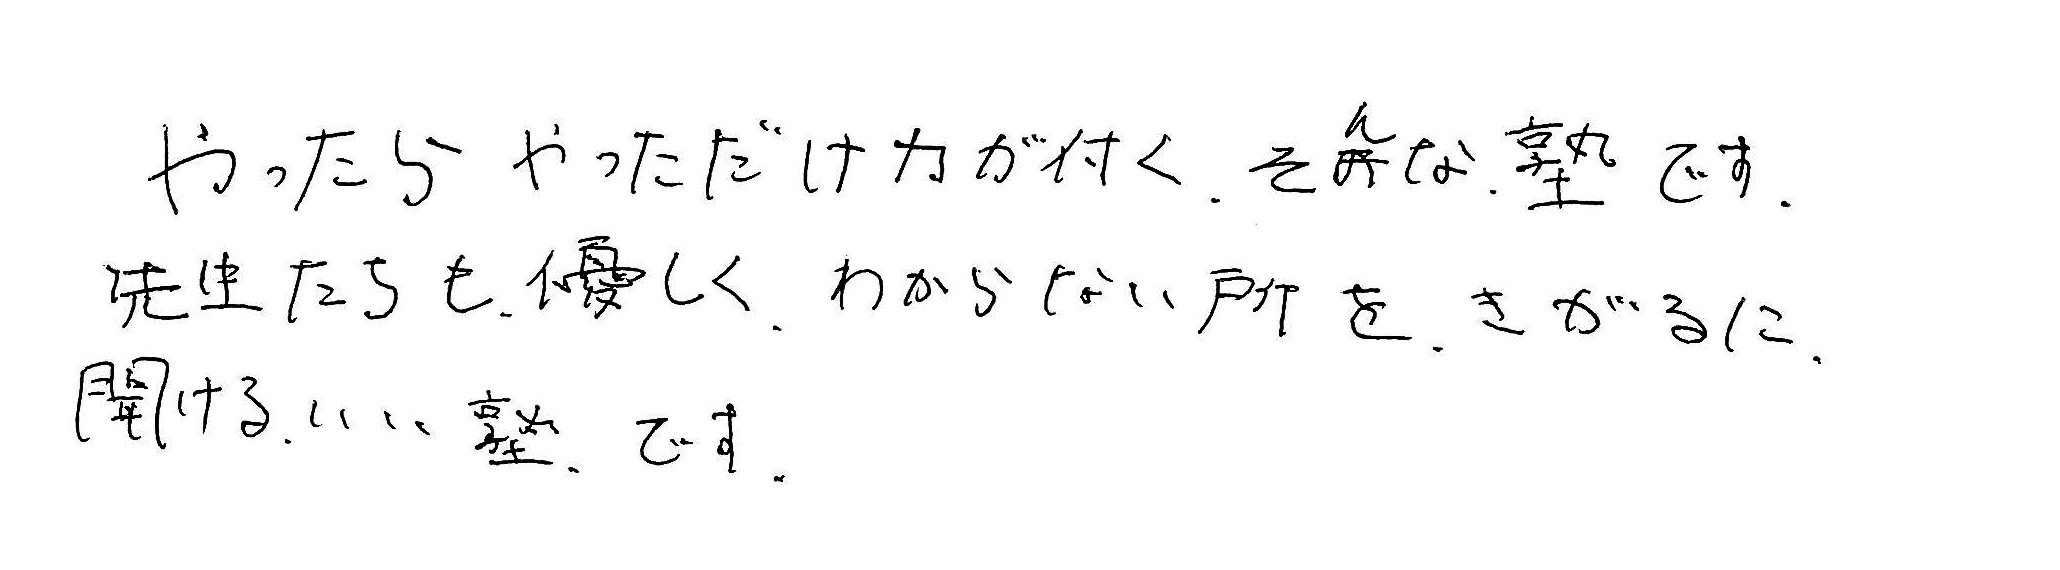 やったらやっただけ力が付く.そんな.塾です.
先生たちも.優しく.わからない所を.きがるに.
聞ける.いい塾.です.